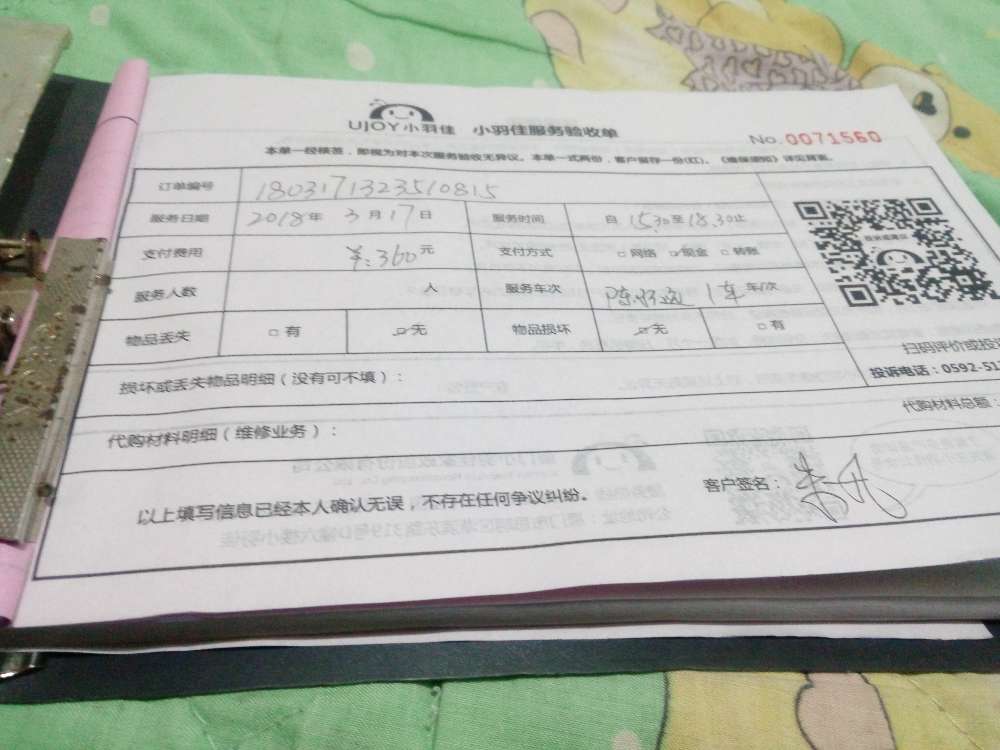 UJOY小羽佳 小羽佳服务验收单
No.0071560
本单一经核签，即视为对本次服务验收无异议。本单一式两份，客户留存一份(红)。《维保须知》详见背面。
订单编号 1803171323510815
服务日期 2018年 3月17日 服务时间 自 15:30至18:30止
支付费用 ¥:360元 支付方式 □网络 ☑现金 □转账
服务人数 人 服务车次 1车 车/次
物品丢失 □有 ☑无 物品损坏 ☑无 □有
扫码评价或投
投诉电话：0592-51
损坏或丢失物品明细（没有可不填）：
代购材料明细（维修业务）： 代购材料总额：
以上填写信息已经本人确认无误，不存在任何争议纠纷。 客户签名：